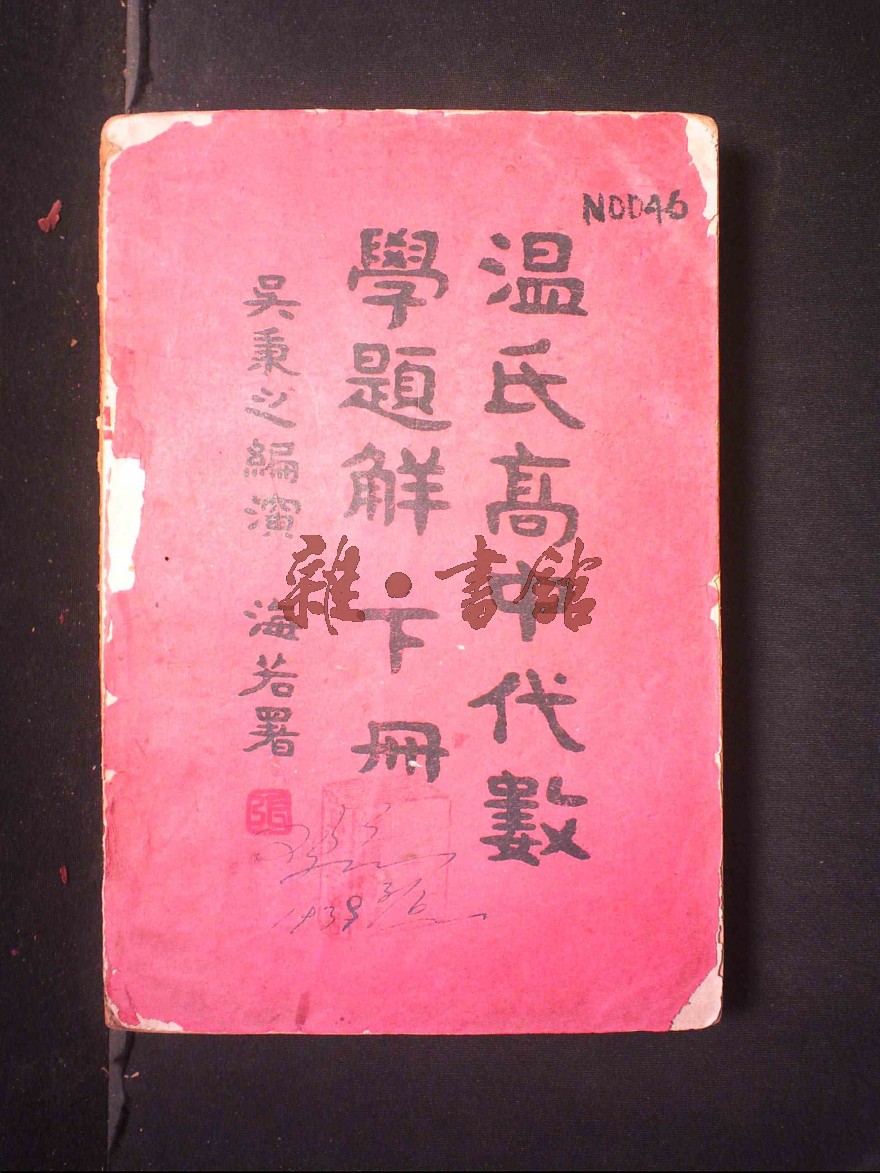 NOD46
温氏高中代數
學題解 下冊
吳秉之編演 海若署
張
雜·書館
1939 3/6